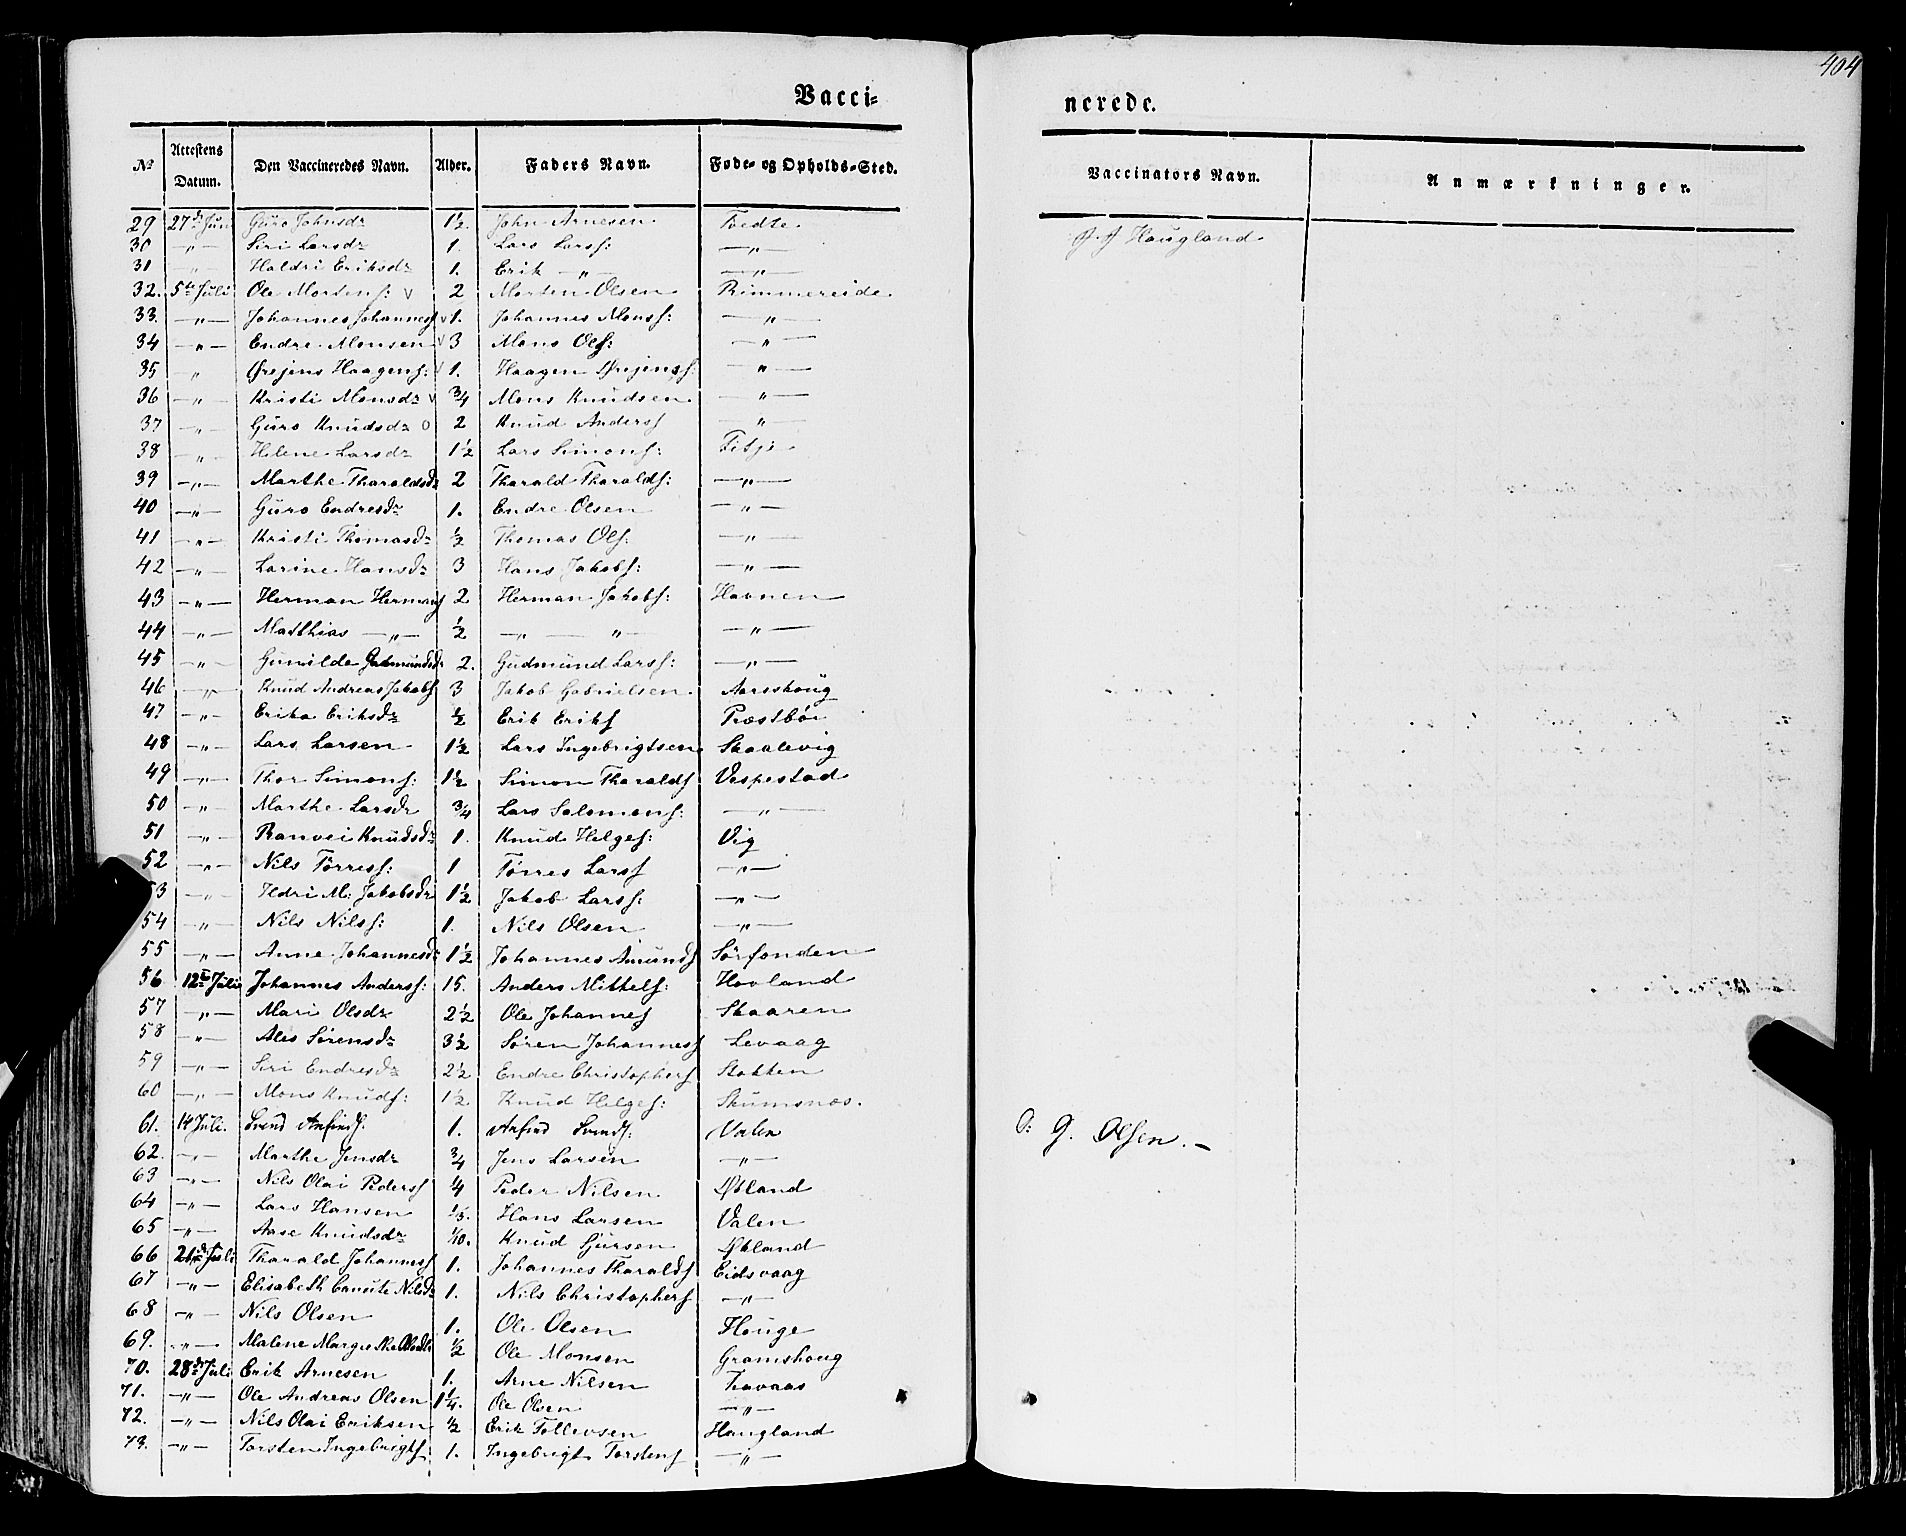 404
Vacci=
nerede.
No Attestens Datum. Den Vaccineredes Navn. Alder. Faders Navn. Føde- og Opholds-Sted. Vaccinators Navn. Anmærkninger.
29 27de Juni Guro Johnsdr 1½. John Arnesen Tvedte. Haugland.
30 -"- Siri Larsdr 1. Lars Larss: -"-
31 -"- Holdri Eriksdr 1. Erik -"- -"-
32. 5te Juli Ole Mortens: v 2 Morten Olsen Rimmereide
33. -"- Johannes Johanness v 1. Johannes Monss: -"-
34 -"- Endre Monsen v 3 Mons Ols: -"-
35 " Ørjens Haagens: v 1. Haagen Ørjenss: -"-
36 -"- Kristi Monsdr v ¾ Mons Knudsen -"-
37 -"- Guro Knudsdr o 2 Knud Anderss -"-
38 -"- Helene Larsdr 1½ Lars Simons: Fitje
39 -"- Marthe Tharaldsdr 2 Tharald Tharalds: -"-
40 -"- Guro Endresdr 1. Endre Olsen -"-
41 -"- Kristi Thomasdr ½ Thomas Ols: -"-
42 -"- Larine Hansdr 3 Hans Jakobs: -"-
43 -"- Herman Hermans 2 Herman Jakobs: Havnen
44 -"- Matthias -"- ½ -"- " -"-
45 -"- Gunilde Gudmundsdr 2. Gudmund Larss: -"-
46 -"- Knud Andreas Jakobs 3 Jakob Gabrielsen Aarskoug
47 -"- Erika Eriksdr ½ Erik Eriks Præstbøe
48 -"- Lars Larsen 1½ Lars Ingebrigtsen Skaalevig
49 -"- Thor Simons: 1½ Simon Tharalds Vespestad
50 -"- Marthe Larsdr ¾ Lars Salomons: -"-
51 -"- Ranvei Knudsdr 1. Knud Helges: Vig
52 -"- Nils Tørress: 1 Tørres Larss -"-
53 -"- Ildri M: Jakobsdr 1½ Jakob Larss: -"-
54 -"- Nils Nilss: 1. Nils Olsen -"-
55 -"- Anne Johannesdr 1½ Johannes Amunds Sørfonden
56 12te Juli Johannes Anderss: 15. Anders Mikkels: Hovland
57 -"- Mari Olsdr 2½ Ole Johannes Skaaren
58 -"- Ales Sørensdr 3½ Søren Johanness Levaag
59 -"- Siri Endresdr 2½ Endre Christophers Stokken
60 -"- Mons Knuds: 1½ Knud Helges: Skumsnæs.
61. 14 Juli. Svend Anfinds: 1. Anfind Svends: Valen G. Olsen. -
62. -"- Marthe Jensdr ¾ Jens Larsen -"-
63 -"- Nils Olai Peders ¼ Peder Nilsen Økland
64 -"- Lars Hansen 1/5. Hans Larsen Valen
65 -"- Aase Knudsdr 1/10. Knud Økland
66 21de Juli Tharald Johanness 1. Johannes Tharalds Eidsvaag
67 -"- Elisabeth Nilsdr 1. Nils Christophers -"-
68 -"- Nils Olsen 1. Ole Olsen Houge
69. -"- Malene ½ Ole Monsen Gramshoug
70. 28de Juli Erik Arnesen 1. Arne Nilsen
71. -"- Ole Andreas Olsen 1¼. Ole Olsen -"-
72. -"- Nils Olai Eriksen ½ Erik Tollevsen Haugland
73. -"- Torsten Ingebrigts 1. Ingebrigt Torstens -"-